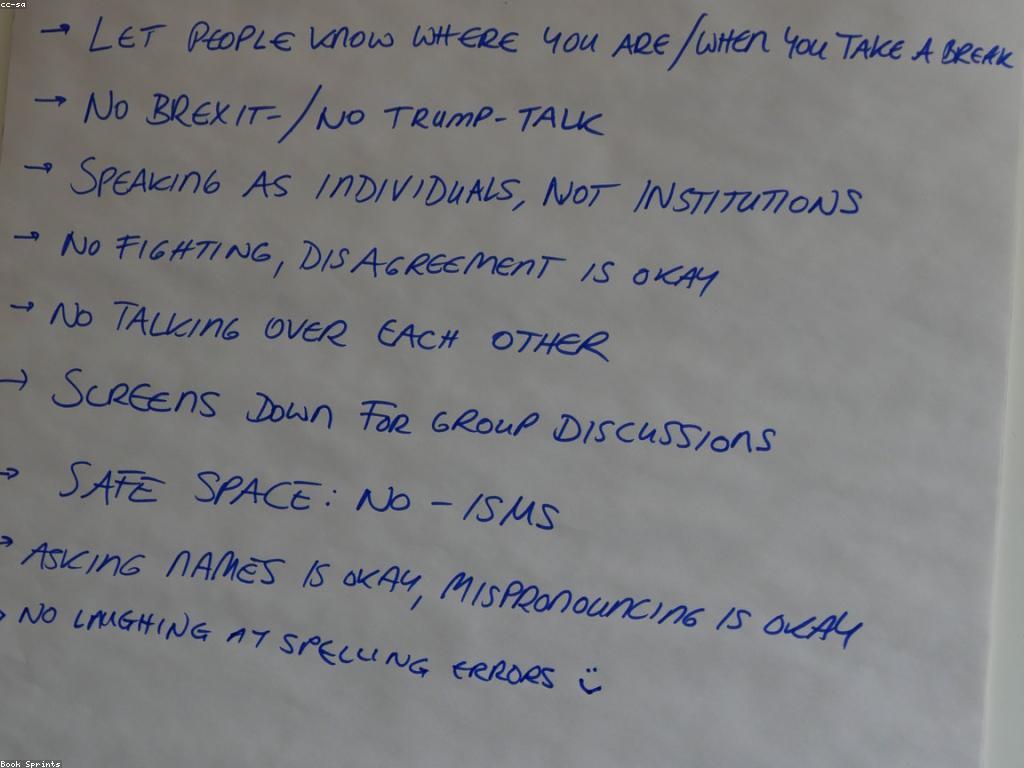 cc-sa
→ LET PEOPLE KNOW WHERE YOU ARE/WHEN YOU TAKE A BREAK
→ NO BREXIT-/NO TRUMP-TALK
→ SPEAKING AS INDIVIDUALS, NOT INSTITUTIONS
→ NO FIGHTING, DISAGREEMENT IS OKAY
→ NO TALKING OVER EACH OTHER
→ SCREENS DOWN FOR GROUP DISCUSSIONS
→ SAFE SPACE: NO -ISMS
→ ASKING NAMES IS OKAY, MISPRONOUNCING IS OKAY
→ NO LAUGHING AT SPELLING ERRORS ☺
Book Sprints